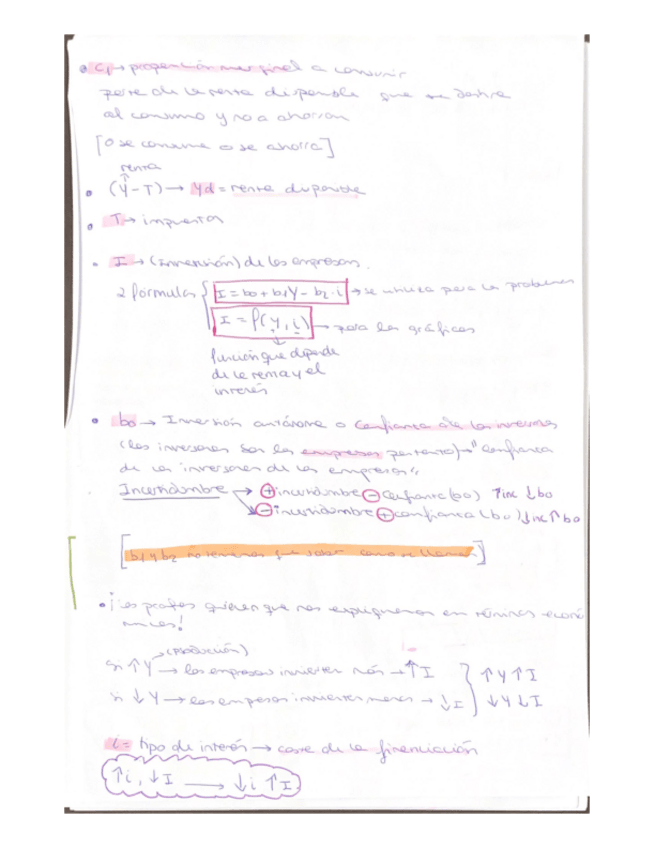 • C1 → propensión marginal a consumir
parte de la renta disponible que se destina
al consumo y no a ahorrar
[O se consume o se ahorra]
renta
↑
• (Y-T) → Yd = renta disponible
• T → impuestos
• I → (Inversión) de las empresas.
2 fórmulas { I = b0 + b1Y - b2·i → se utiliza para los problemas
I = f(Y, i) → para las gráficas
↓
función que depende
de la renta y el
interés
• b0 → Inversión autónoma o confianza de los inversores
(los inversores son las empresas por tanto) → "confianza
de los inversores de las empresas"
Incertidumbre → ⊕ incertidumbre ⊖ confianza (b0) ↑inc ↓b0
→ ⊖ incertidumbre ⊕ confianza (b0) ↓inc ↑b0
[b1 y b2 no tenemos que saber como se llaman]
• ¡Los profes quieren que nos expliquemos en términos econó
micos!
(Producción)
Si ↑Y → las empresas invierten más → ↑I } ↑Y ↑I
Si ↓Y → las empresas invierten menos → ↓I } ↓Y ↓I
i = tipo de interés → coste de la financiación
↑i, ↓I → ↓i ↑I